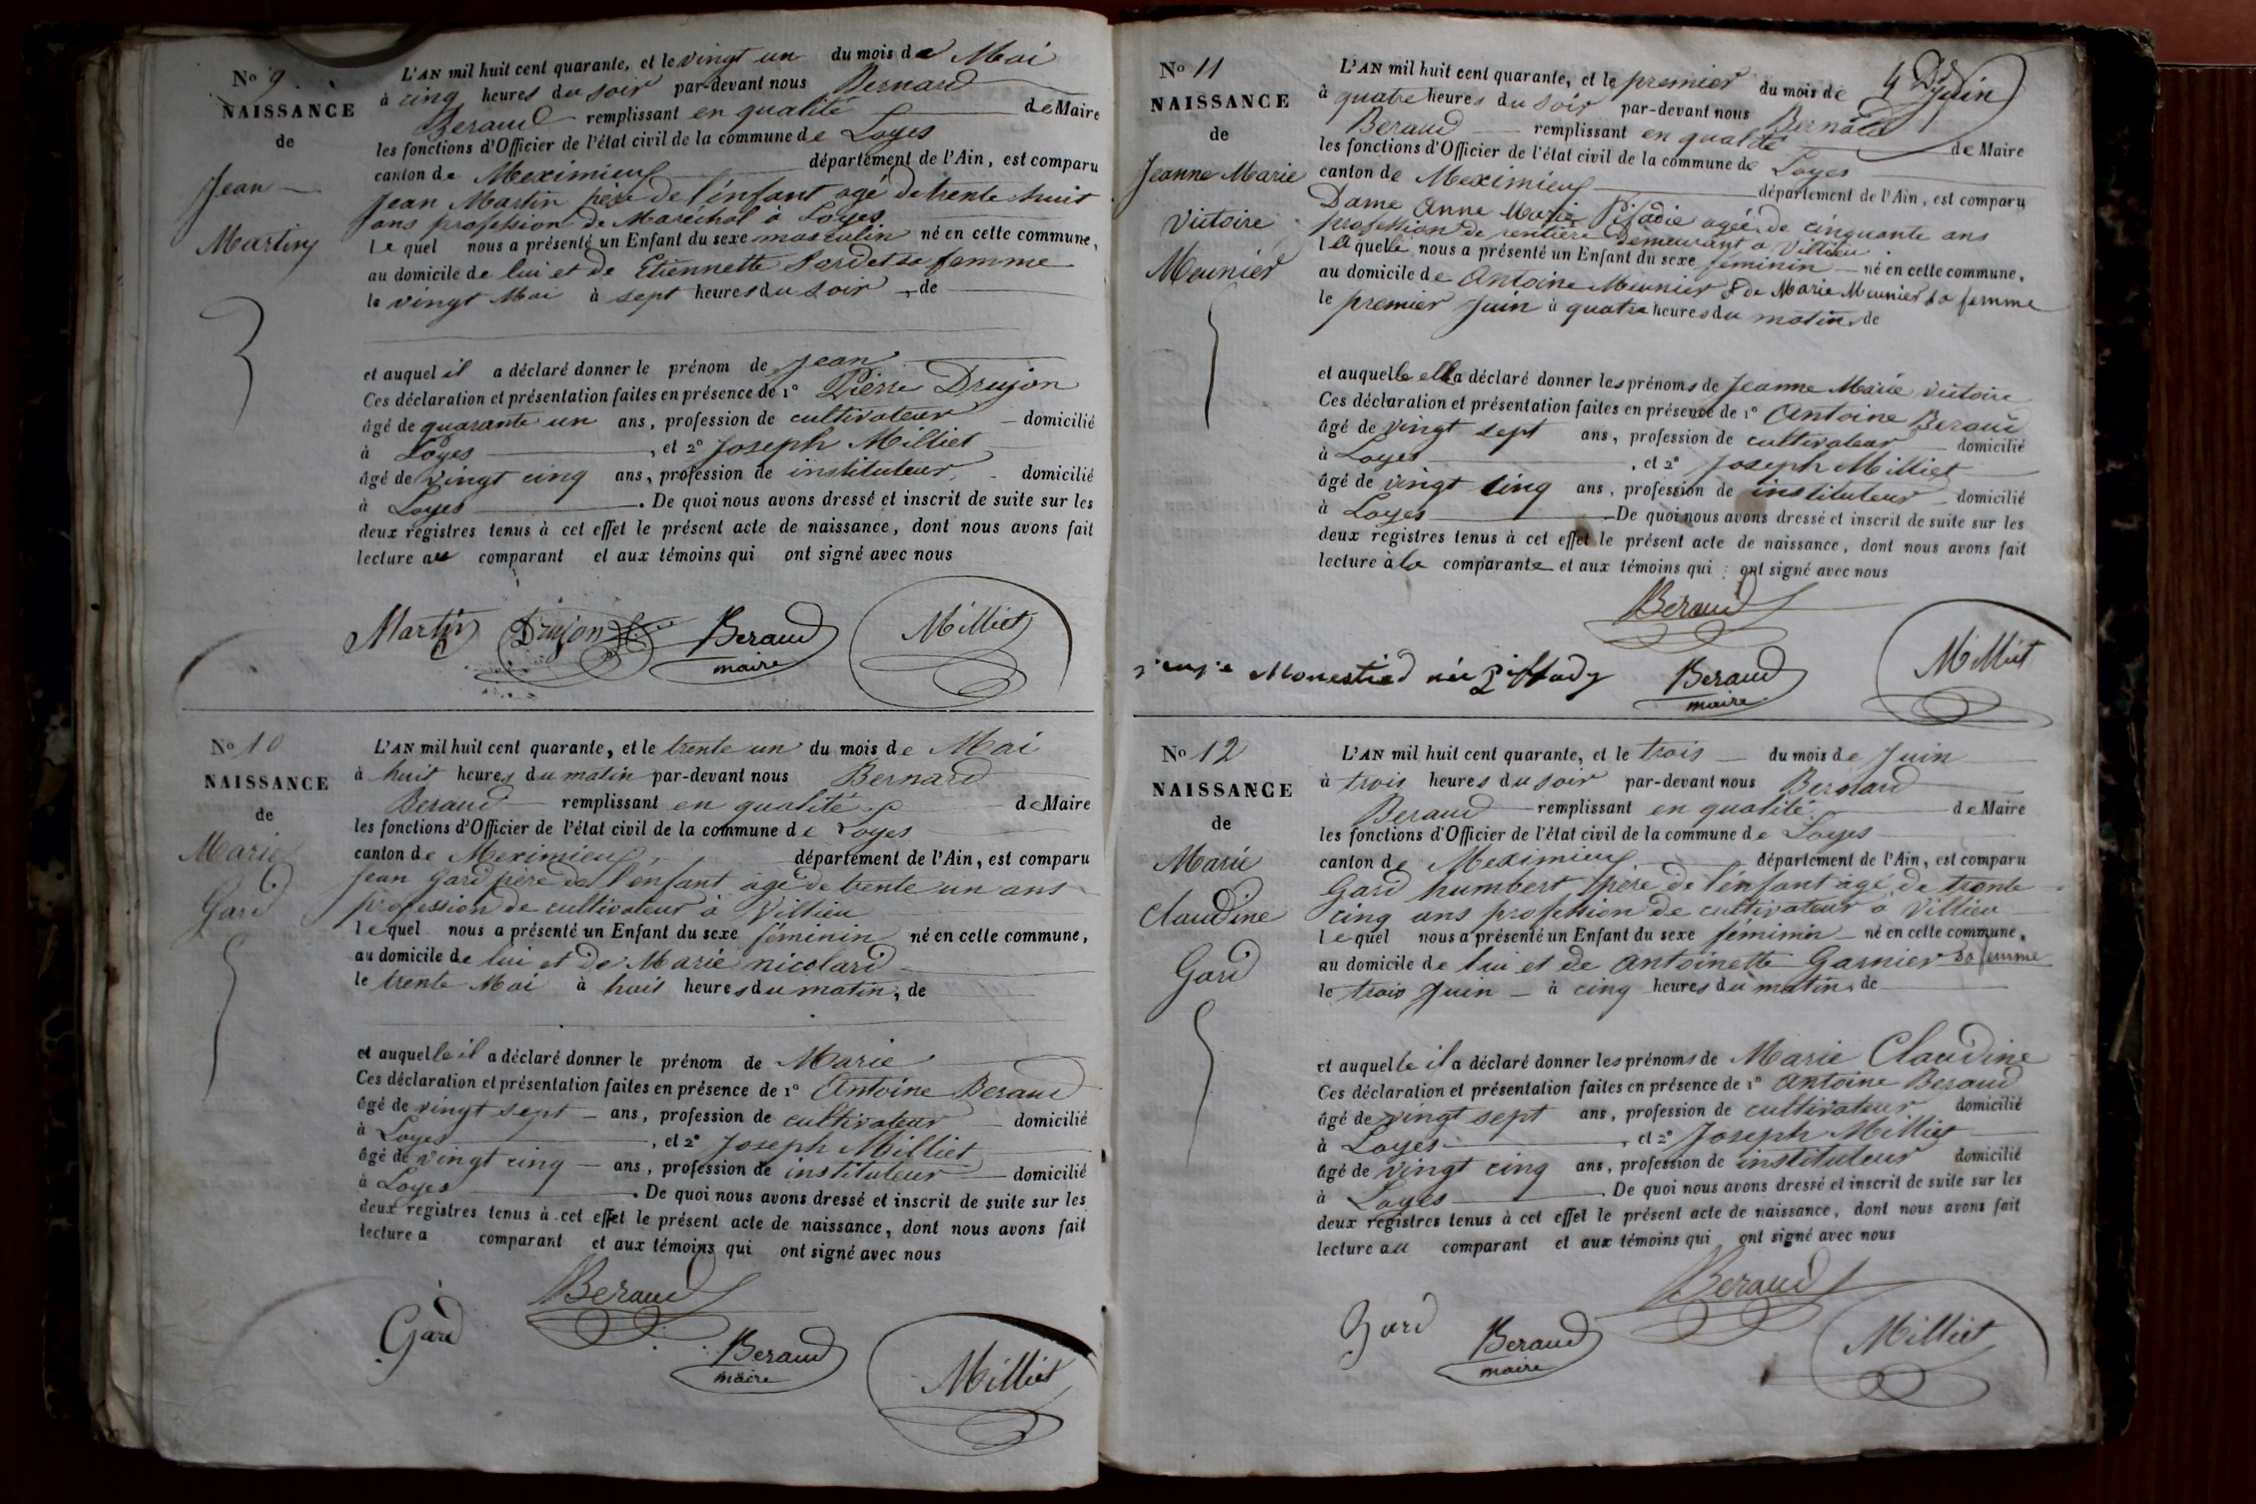 No 9
NAISSANCE
de
Jean
Martin
L'AN mil huit cent quarante, et le vingt un du mois de Mai
à cinq heures du soir par-devant nous Bernard
Beraud remplissant en qualité de Maire
les fonctions d'Officier de l'état civil de la commune de Loyes
canton de Meximieux département de l'Ain, est comparu
Jean Martin père de l'énfant agé de trente huit
ans profession de Maréchal à Loyes
lequel nous a présenté un Enfant du sexe masculin né en cette commune,
au domicile de lui et de Etiennette sa femme
le vingt Mai à sept heures du soir, de
et auquel il a déclaré donner le prénom de Jean
Ces déclaration et présentation faites en présence de 1° Pierre Drujon
âgé de quarante un ans, profession de cultivateur domicilié
à Loyes, et 2° Joseph Milliet
âgé de vingt cinq ans, profession de instituteur domicilié
à Loyes. De quoi nous avons dressé et inscrit de suite sur les
deux registres tenus à cet effet le présent acte de naissance, dont nous avons fait
lecture au comparant et aux témoins qui ont signé avec nous
Martin Drujon Beraud Milliet
maire
No 10
NAISSANCE
de
Marie
Gard
L'AN mil huit cent quarante, et le trente un du mois de Mai
à huit heures du matin par-devant nous Bernard
Beraud remplissant en qualité de Maire
les fonctions d'Officier de l'état civil de la commune de Loyes
canton de Meximieux, département de l'Ain, est comparu
Jean Gard père de l'enfant agé de trente un ans
profession de cultivateur à Villieu
lequel nous a présenté un Enfant du sexe féminin né en cette commune,
au domicile de lui et de Marie nicolard
le trente Mai à huit heures du matin, de
et auquelle il a déclaré donner le prénom de Marie
Ces déclaration et présentation faites en présence de 1° Antoine Beraud
âgé de vingt sept ans, profession de cultivateur domicilié
à Loyes, et 2° Joseph Milliet
âgé de vingt cinq ans, profession de instituteur domicilié
à Loyes. De quoi nous avons dressé et inscrit de suite sur les
deux registres tenus à cet effet le présent acte de naissance, dont nous avons fait
lecture a comparant et aux témoins qui ont signé avec nous
Beraud
Gard Beraud Milliet
maire
No 11
NAISSANCE
de
Jeanne Marie
Victoire
Meunier
L'AN mil huit cent quarante, et le premier du mois de Juin
à quatre heures du soir par-devant nous Bernard
Beraud remplissant en qualité de Maire
les fonctions d'Officier de l'état civil de la commune de Loyes
canton de Meximieux département de l'Ain, est comparu
Dame Anne Marie agée de cinquante ans
profession de rentière demeurant à Villieu
laquelle nous a présenté un Enfant du sexe féminin né en cette commune,
au domicile de Antoine Meunier & de Marie Meunier sa femme
le premier Juin à quatre heures du matin, de
et auquelle ella déclaré donner les prénoms de Jeanne Marie victoire
Ces déclaration et présentation faites en présence de 1° Antoine Beraud
âgé de vingt sept ans, profession de cultivateur domicilié
à Loyes, et 2° Joseph Milliet
âgé de vingt cinq ans, profession de instituteur domicilié
à Loyes De quoi nous avons dressé et inscrit de suite sur les
deux registres tenus à cet effet le présent acte de naissance, dont nous avons fait
lecture à la comparante et aux témoins qui ont signé avec nous
Beraud
née Beraud Milliet
maire
No 12
NAISSANCE
de
Marie
Claudine
Gard
L'AN mil huit cent quarante, et le trois du mois de Juin
à trois heures du soir par-devant nous Bernard
Beraud remplissant en qualité de Maire
les fonctions d'Officier de l'état civil de la commune de Loyes
canton de Meximieux département de l'Ain, est comparu
Gard humbert père de l'énfant agé de trente
cinq ans profession de cultivateur à Villieu
lequel nous a présenté un Enfant du sexe féminin né en cette commune,
au domicile de lui et de antoinette Garnier sa femme
le trois Juin à cinq heures du matin, de
et auquelle il a déclaré donner les prénoms de Marie Claudine
Ces déclaration et présentation faites en présence de 1° Antoine Beraud
âgé de vingt sept ans, profession de cultivateur domicilié
à Loyes, et 2° Joseph Milliet
âgé de vingt cinq ans, profession de instituteur domicilié
à Loyes. De quoi nous avons dressé et inscrit de suite sur les
deux registres tenus à cet effet le présent acte de naissance, dont nous avons fait
lecture au comparant et aux témoins qui ont signé avec nous
Beraud
Gard Beraud Milliet
maire